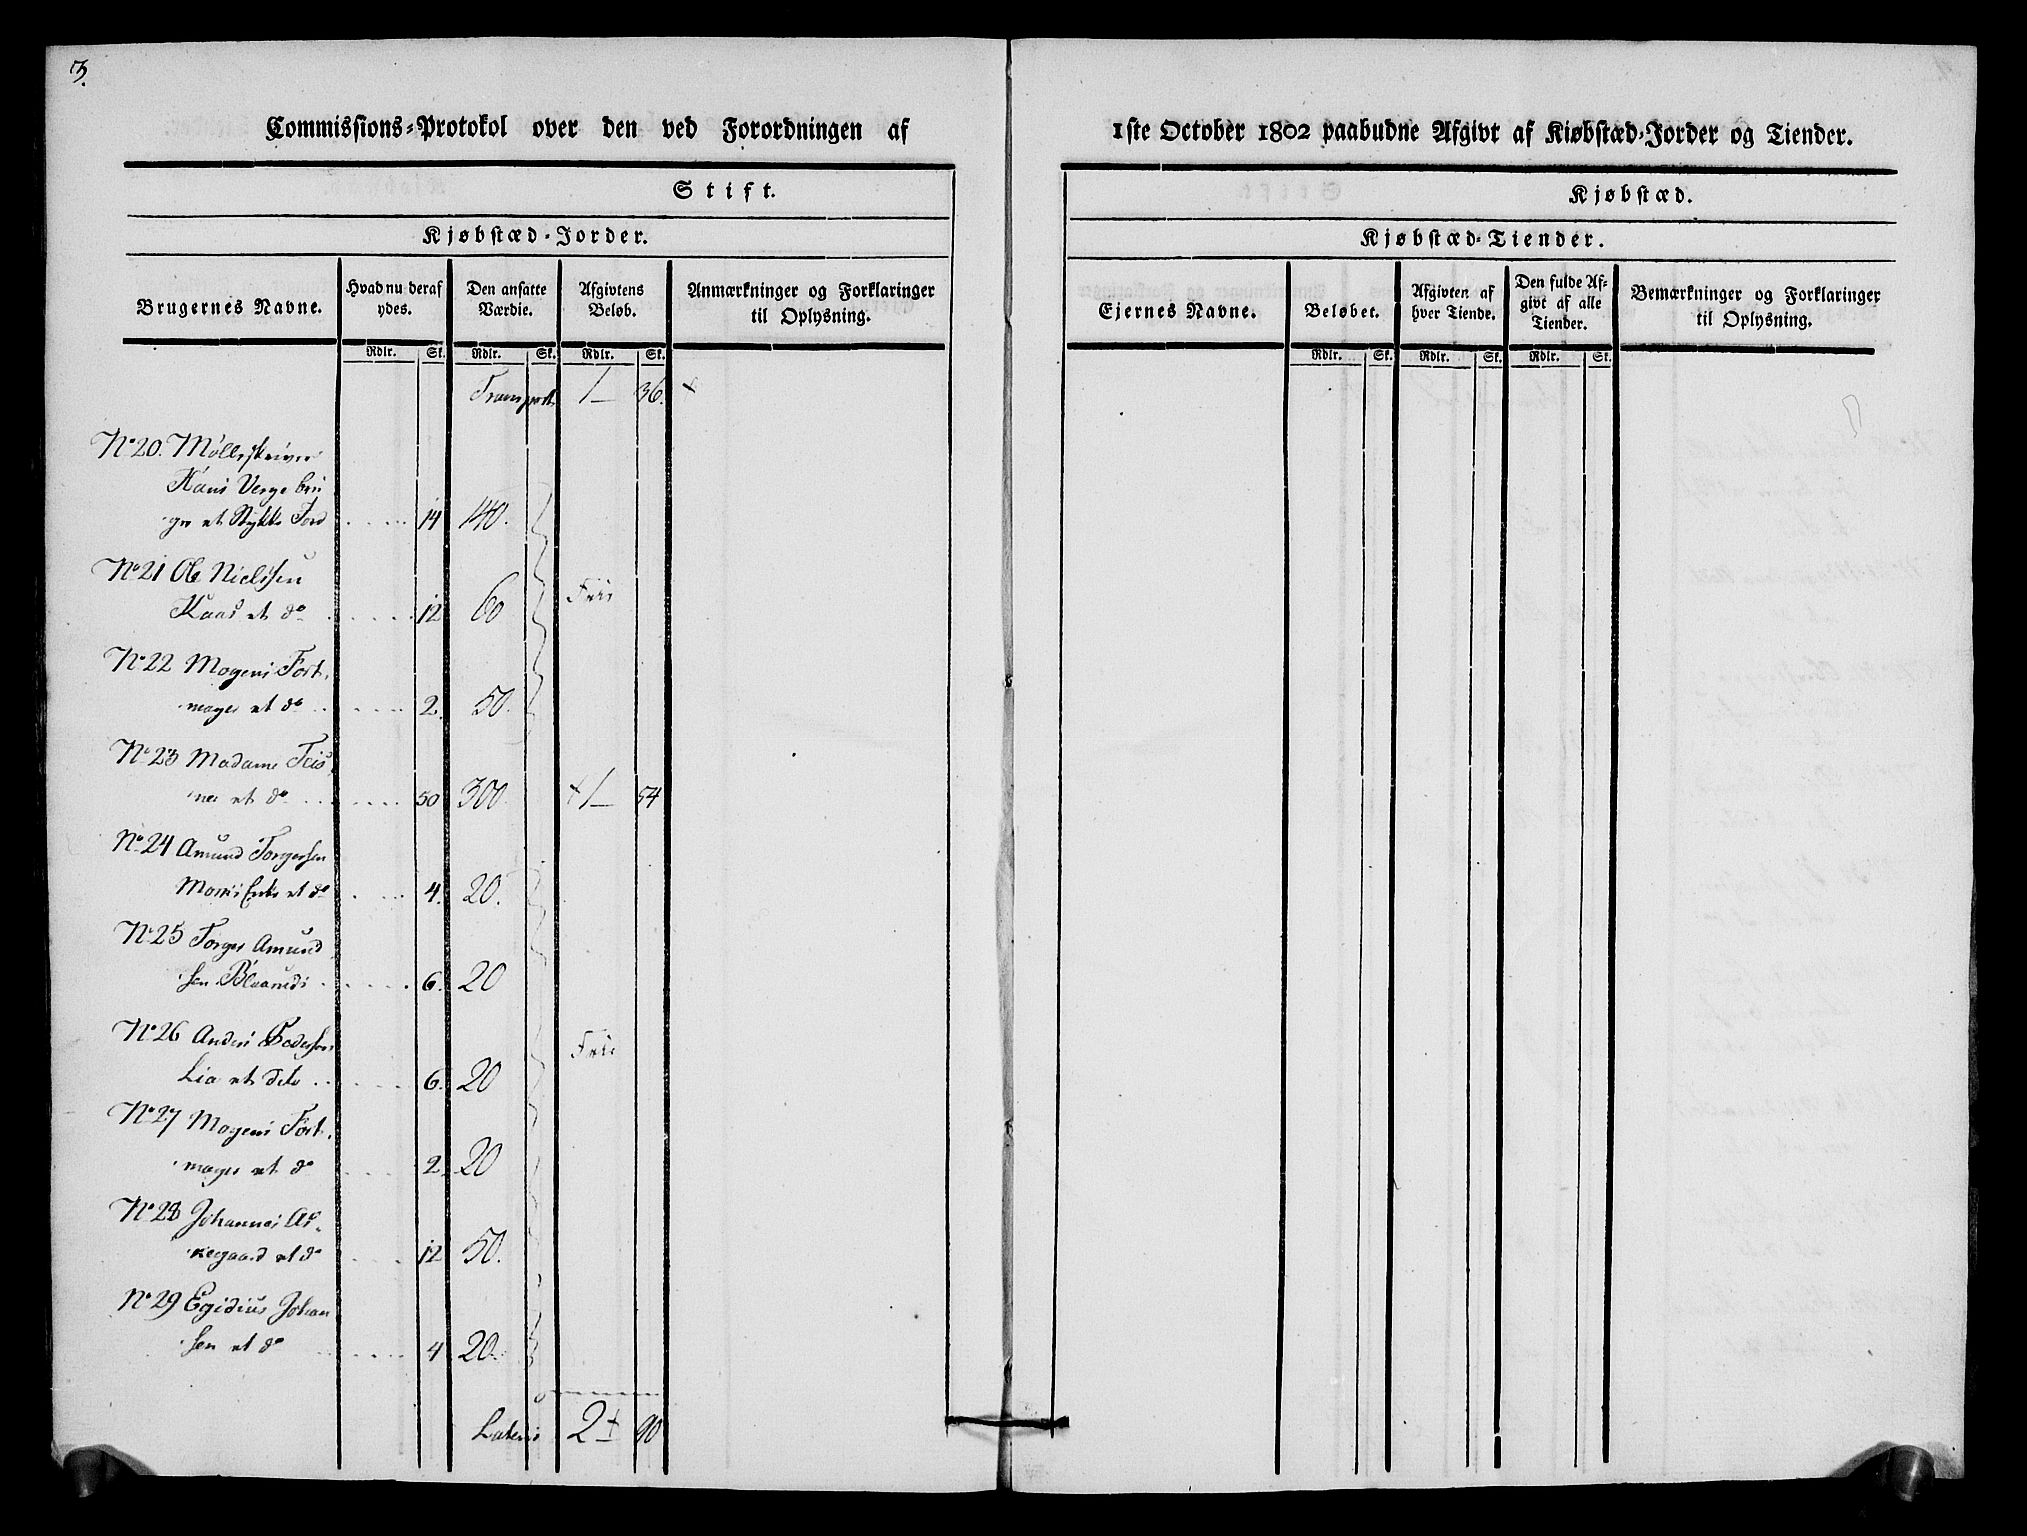 3.
Commissions-Protokol over den ved Forordningen af
1ste October 1802 paabudne Afgivt af Kiøbstæd-Jorder og Tiender.
Stift.
Kjøbstæd.
Kjøbstæd-Jorder.
Kjøbstæd-Tiender.
Brugernes Navne.
Hvad nu deraf
ydes.
Den ansatte
Værdie.
Afgivtens
Beløb.
Anmærkninger og Forklaringer
til Oplysning.
Ejernes Navne.
Beløbet.
Afgivten af
hver Tiende.
Den fulde Af-
givt af alle
Tiender.
Bemærkninger og Forklaringer
til Oplysning.
Rdlr. Sk. Rdlr. Sk. Rdlr. Sk.
Rdlr. Sk. Rdlr. Sk. Rdlr. Sk.
Transport 1 36.
No 20. Møllerskriver
Hans Verge bru
ger et Stykke Jord 14 140.
No 21 Ole Nielssen
Kaas et do 12 60 Frie
No 22 Mogens Fort
mager et do 2. 50.
No 23 Madame
et do 50 300. 1 54
No 24 Amund Torgersen
et do 4. 20.
No 25 Torger Amund
sen 6. 20
No 26 Anders Pedersen Frie
Lia et dito 6. 20
No 27 Mogens Fort
mager et do 2. 20
No 28 Johannes As
kegaard et do 12 50.
No 29 Egidius Johan
sen et do 4 20.
Lateris 2 90